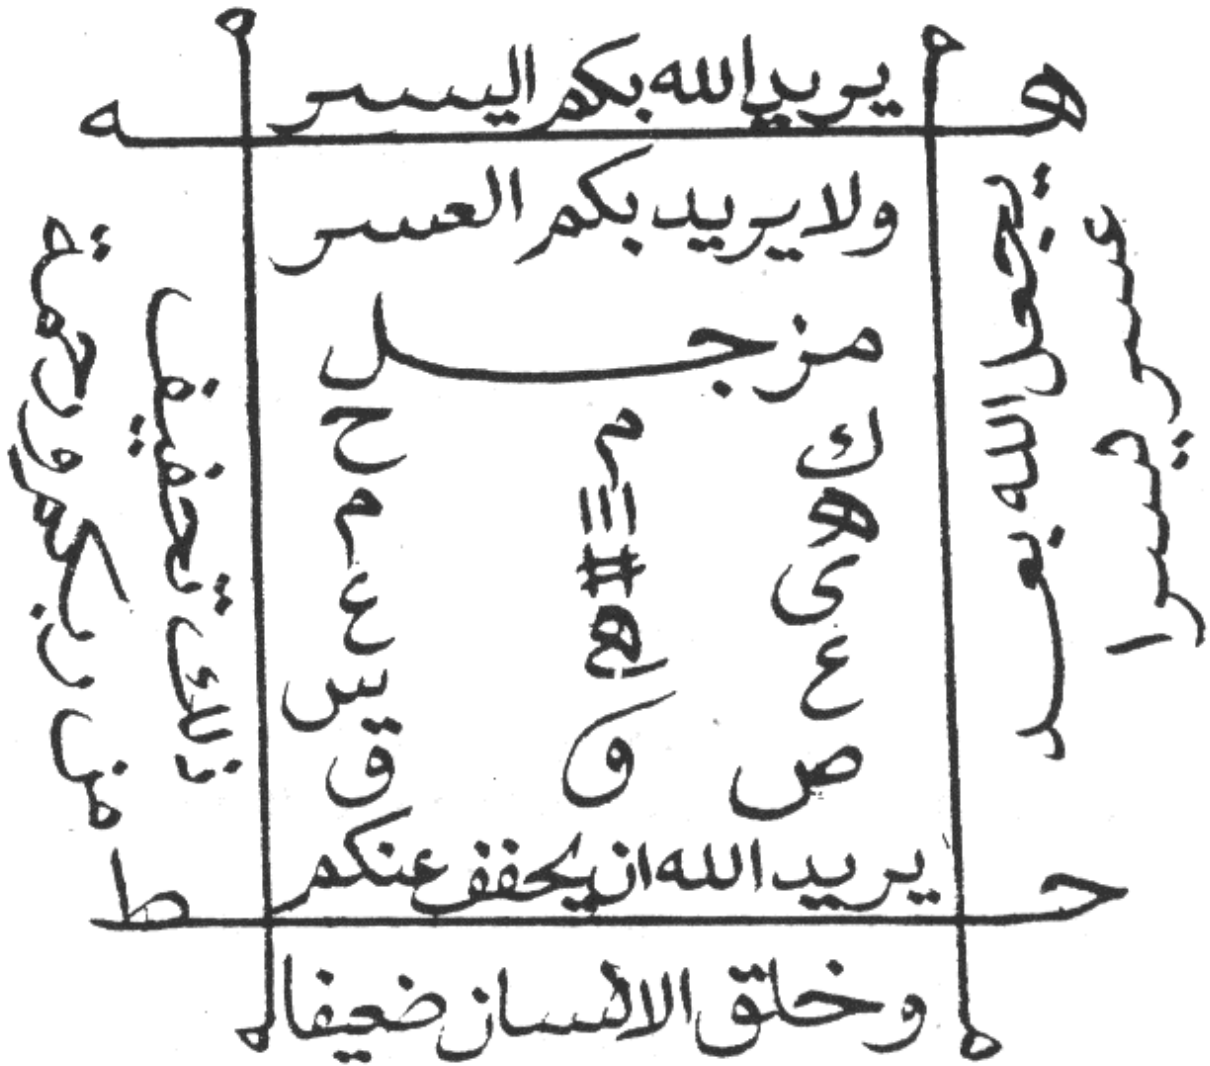 يريد الله بكم اليسر
ه
ه
ولا يريد بكم العسر
مزجل
ك م ح
ه م
ى ع
ع ه س
ص و ق
يريد الله ان يخفف عنكم
ح
ط
وخلق الانسان ضعيفا
سيجعل الله بعد
عسر يسرا
ذلك تخفيف
من ربكم ورحمة